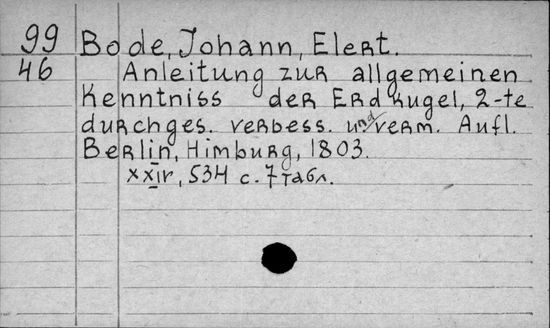 99 Bode, Johann, Elert.
46 Anleitung zur allgemeinen
Kenntniss der Erdkugel, 2-te
durchges. verbess. und verm. Aufl.
Berlin, Himburg, 1803.
XXIV, 534 с. 7 табл.